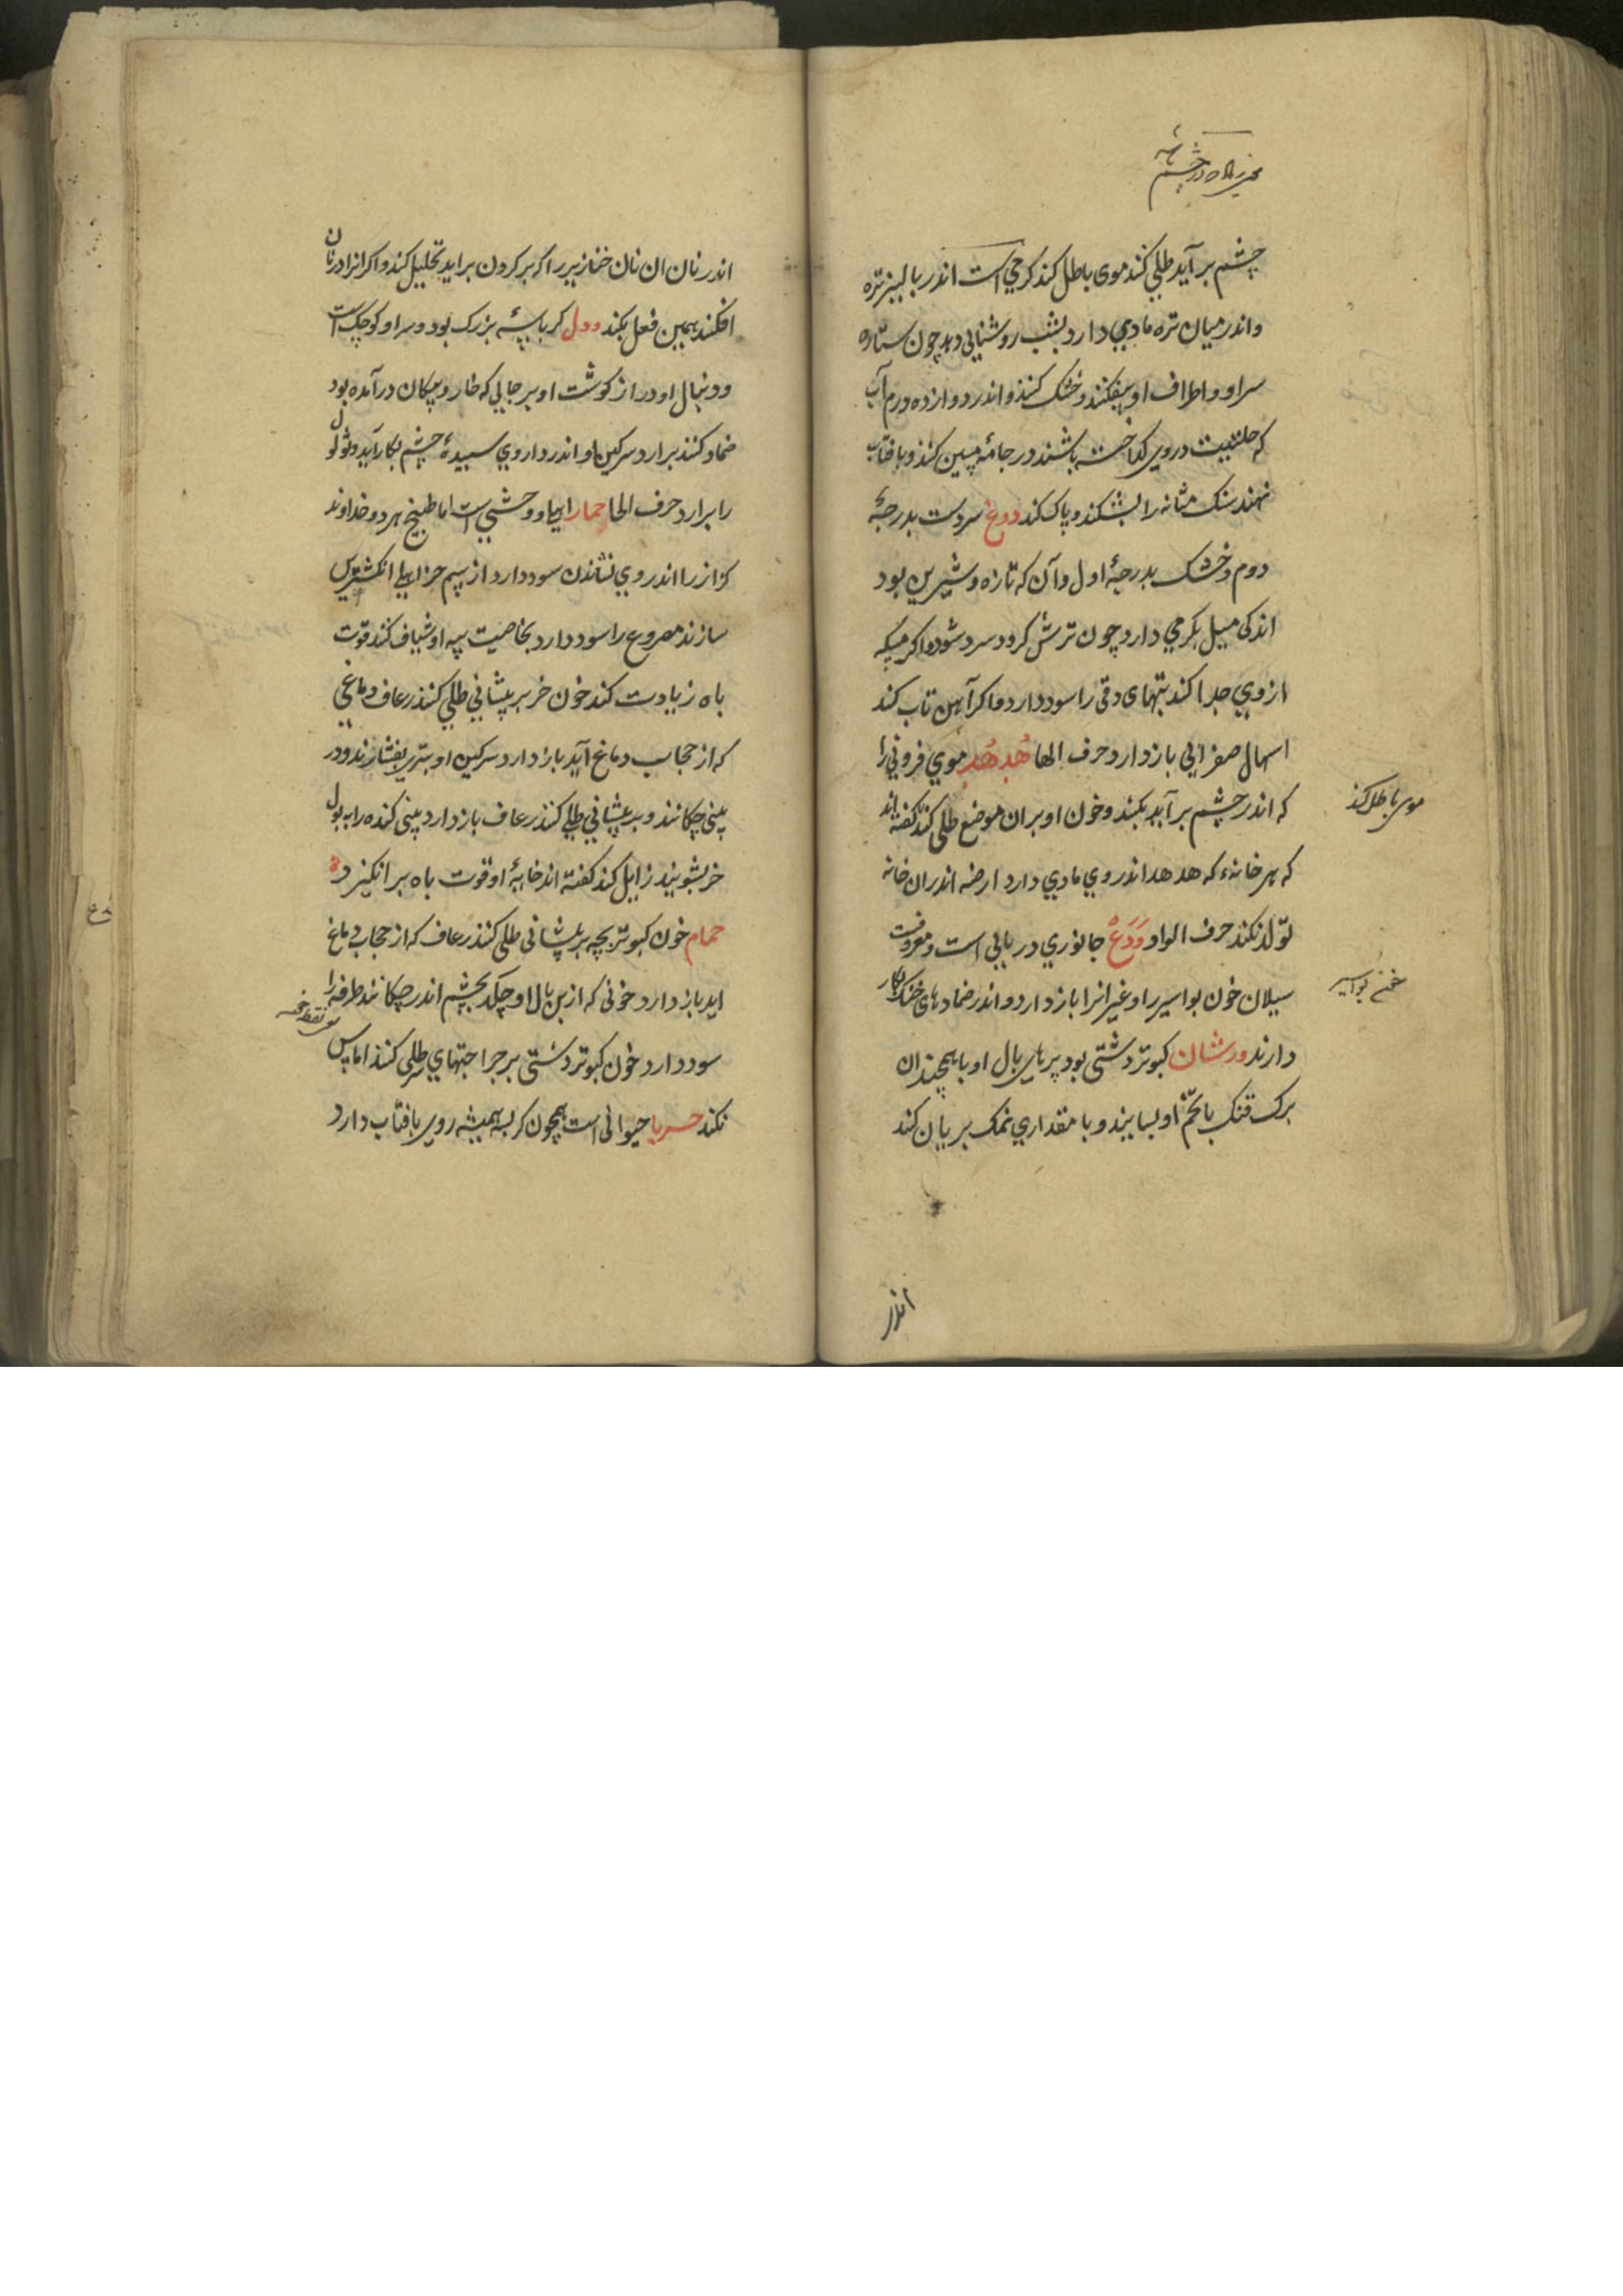 چشم برآید طلی کنند موی باطل کند کرمی است اندر بالیز تره
و اندر میان تره ماوی دارد بشب روشنایی دهد چون ستاره
سر او و اطراف او بیفکنند و خشک کنند و اندر دوازده درم آب
که حلتیت در وی کداخته باشند در جامهٔ مسین کنند و بافتاب
نهند سنک مثانه را بشکند و پاک کند دوغ سردست بدرجهٔ
دوم و خشک بدرجهٔ اول و آن که تازه و شیرین بود
اندکی میل بکرمی دارد چون ترش کردد سرد شود و اکر مسکه
از وی جدا کنند تبهای دقی را سود دارد و اکر آهن تاب کنند
اسهال صفرایی باز دارد حرف الها هُدهُد موی فزونی را
که اندر چشم برآید بکنند و خون او بران موضع طلی کنند کفته‌اند
که هر خانهٔ که هدهد اندر وی ماوی دارد ارضه اندران خانه
تولد نکند حرف الواو وَدَعْ جانوری دریایی است و معروفست
سیلان خون بواسیر را و غیر انرا باز دارد و اندر ضمادهای خشک بکار
دارند ورشان کبوتر دشتی بود پرهای بال او با همچندان
برک قنک با تخم او بسایند و با مقداری نمک بریان کنند
موی باطل کند
خون بواسیر
اندر
اندر نان ان نان خنازیر را که بر کردن براید تحلیل کند و اکر انرا در نان
افکنند همین فعل بکند وول کرباسهٔ بزرک بود و سر او کوچک است
و دنبال او دراز کوشت او بر جایی که خار و پیکان درآمده بود
ضماد کنند برارد سرکین او اندر داروی سپیدهٔ چشم بکار آید و ثولول
را برارد حرف الحا حمار اهلی و وحشی است اما طبیخ هر دو خداوند
کزاز را اندر وی نشاندن سود دارد از سم خر اهلی انکشترین
سازند مصروع را سود دارد بخاصیت پیه او شیاف کنند قوت
باه زیادت کند خون خر بر پیشانی طلی کنند رعاف دماغی
که از حجاب دماغ آید باز دارد سرکین او بتری بفشارند و در
بینی چکانند و بر پیشانی طلی کنند رعاف باز دارد بینی کنده را ببول
خر بشویند زایل کند کفته اند خایهٔ او قوت باه بر انکیزد
حمام خون کبوتر بچه بر پیشانی طلی کنند رعاف که از حجاب دماغ
اید باز دارد خونی که از بن بال او چکد بچشم اندر چکانند طرفه را
سود دارد خون کبوتر دشتی بر جراحتهای سر طلی کنند اماس
نکند حربا حیوانی است همچون کربسه همیشه روی بافتاب دارد